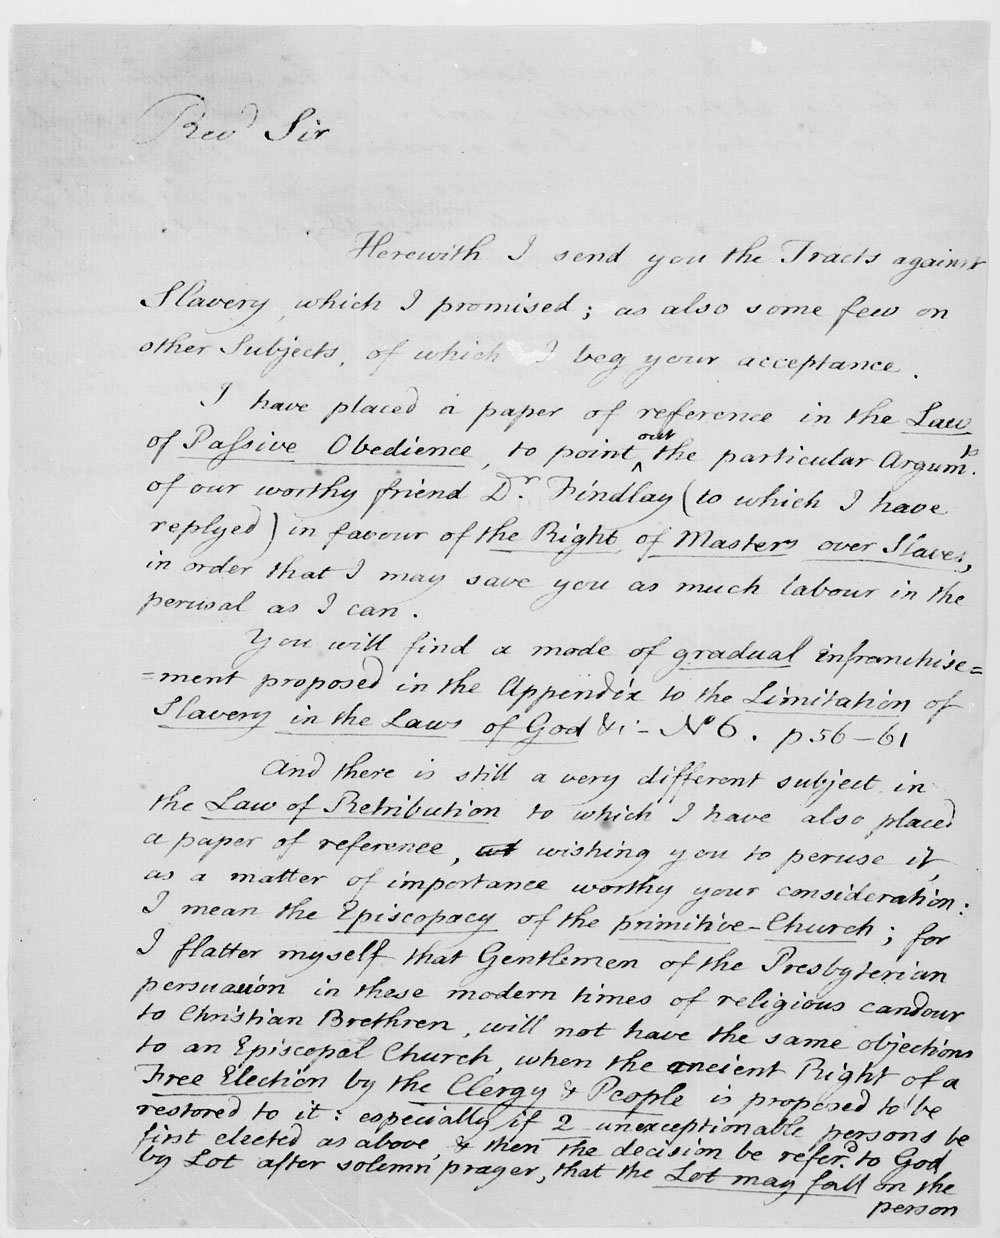 Revd Sir
Herewith I send you the Tracts against
Slavery, which I promised; as also some few on
other Subjects, of which I beg your acceptance.
I have placed a paper of reference in the Law
of Passive Obedience, to point out the particular Argumts.
of our worthy friend Dr. Findlay (to which I have
replyed) in favour of the Right of Masters over Slaves,
in order that I may save you as much labour in the
perusal as I can.
You will find a mode of gradual enfranchise=
=ment proposed in the Appendix to the Limitation of
Slavery in the Laws of God &c - No 6. p 56-61
And there is still a very different subject in
the Law of Retribution to which I have also placed
a paper of reference, wishing you to peruse it,
as a matter of importance worthy your consideration:
I mean the Episcopacy of the primitive-Church; for
I flatter myself that Gentlemen of the Presbyterian
persuasion in these modern times of religious candour
to Christian Brethren, will not have the same objections
to an Episcopal Church, when the ancient Right of a
Free Election by the Clergy & People is proposed to be
restored to it: especially if 2 unexceptionable persons be
first elected as above, & then the decision be refer'd to God
by Lot after solemn prayer, that the Lot may fall on the
person